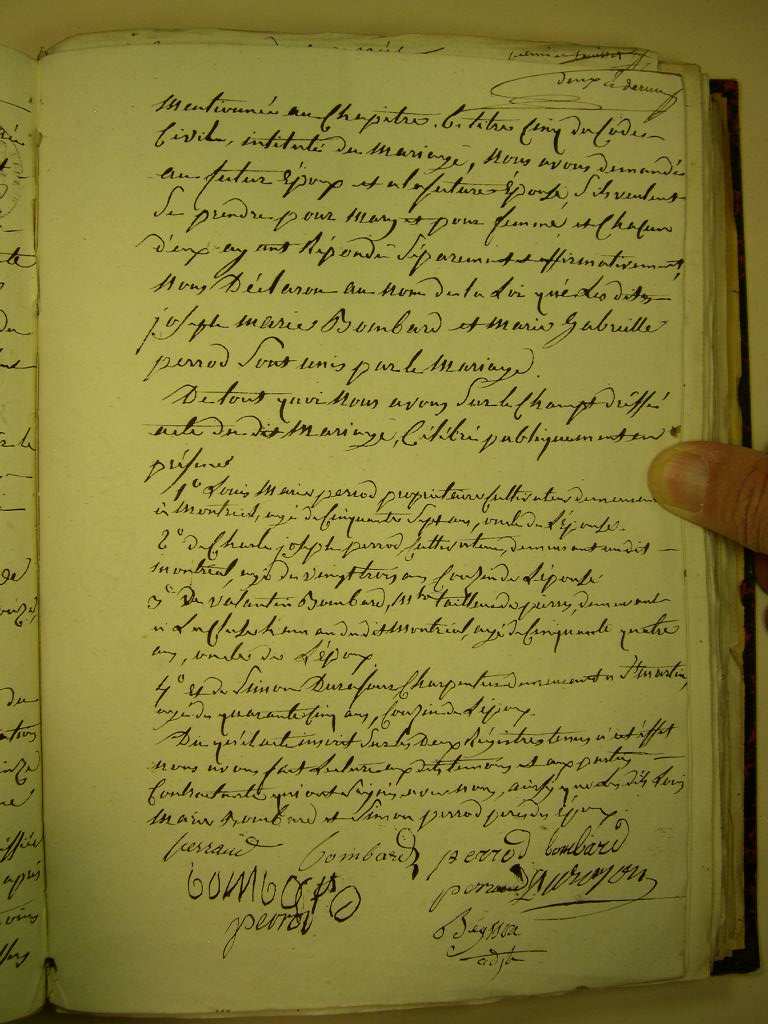 deux et dernier
Mentionnée au Chapitre 6. titre Cinq du Code
Civile, intitulé du Mariage, Nous avons demandé
au futur Époux et a la future Épouse S'ils veulent
Se prendre pour Mary et pour femme et Chacun
d'eux ayant Répondu Séparement et affirmativement,
Nous Déclarons au Nom de la Loi que Les dits
joseph Marie Bombard et Marie Gabrielle
perrod Sont unis par le Mariage.
De tout quoi Nous avons Sur le Champt dréssé
acte du dit Mariage, Célébré publiquement en
présence
1° Louis Marie perrod propriétaire Cultivateur demeurant
à Montréal, agé de Cinquante Sept ans, oncle de L'Épouse.
2° de Charle joseph perrod, Cultivateur, demeurant au dit
Montréal, agé de vingt trois ans Cousin de L'épouse
3° De valantin Bombard, Mtre tailleur de pierre, demeurant
à La Cluse hameau du dit Montréal, agé de Cinquante quatre
ans, oncle de L'époux.
4° et de Simon Durafour Charpentier demeurant à St martin,
agé de quarante Cinq ans, Cousin de L'époux.
Du quel acte inscrit Sur les Deux Régistres tenus à cet éffet
nous avons fait Lecture aux dits temoins et aux parties
Contractante qui ont Signés avec nous, ainsy que Les dits Louis
Marie Bombard et Simon perrod père des Époux.
perraud bombard perrod bombard
bombard perraud
perrod
adjt